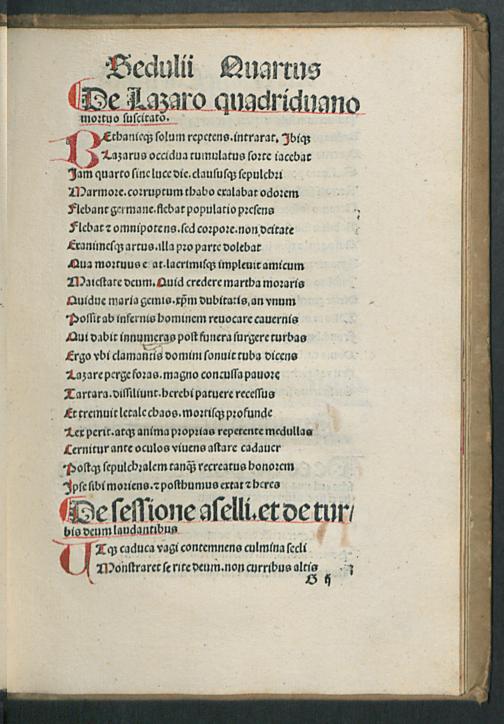 Sedulii Quartus
De Lazaro quadriduano
mortuo suscitato.
BEthanieqȝ solum repetens. intrarat. Ibiqȝ
Lazarus occidua tumulatus sorte iacebat
Iam quarto sine luce die. claususqȝ sepulchri
Marmore. corruptum thabo exalabat odorem
Flebant germane. flebat populatio presens
Flebat ⁊ omnipotens. sed corpore. non deitate
Exanimesqȝ artus. illa pro parte dolebat
Qua mortuus erat. lacrimisqȝ impleuit amicum
Maiestate deum. Quid credere martha moraris
Quidue maria gemis. xp̄m dubitatis. an vnum
Possit ab infernis hominem reuocare cauernis
Qui dabit innumeras post funera surgere turbas
Ergo vbi clamantis domini sonuit tuba dicens
Lazare perge foras. magno concussa pauore
Tartara. dissiliunt. herebi patuere recessus
Et tremuit letale chaos. mortisqȝ profunde
Lex perit. atqȝ anima proprias repetente medullas
Cernitur ante oculos viuens astare cadauer
Postqȝ sepulchralem tanqȝ̄ recreatus honorem
Ipse sibi moriens. ⁊ posthumus extat ⁊ heres
De sessione aselli. et de tur/
bis deum laudantibus
UTqȝ caduca vagi contemnens culmina secli
Monstraret se rite deum. non curribus altis